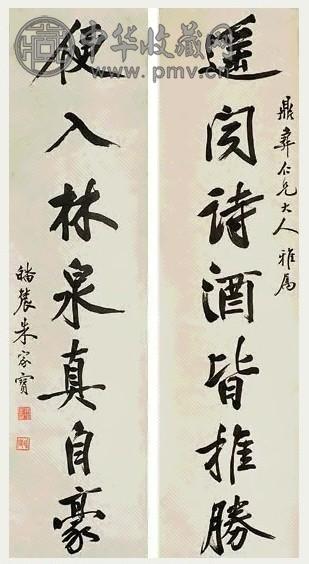 中华收藏网
www.pmv.cn
鼎彝仁兄大人雅属
遙聞詩酒皆推勝
便入林泉真自豪
農朱家寶